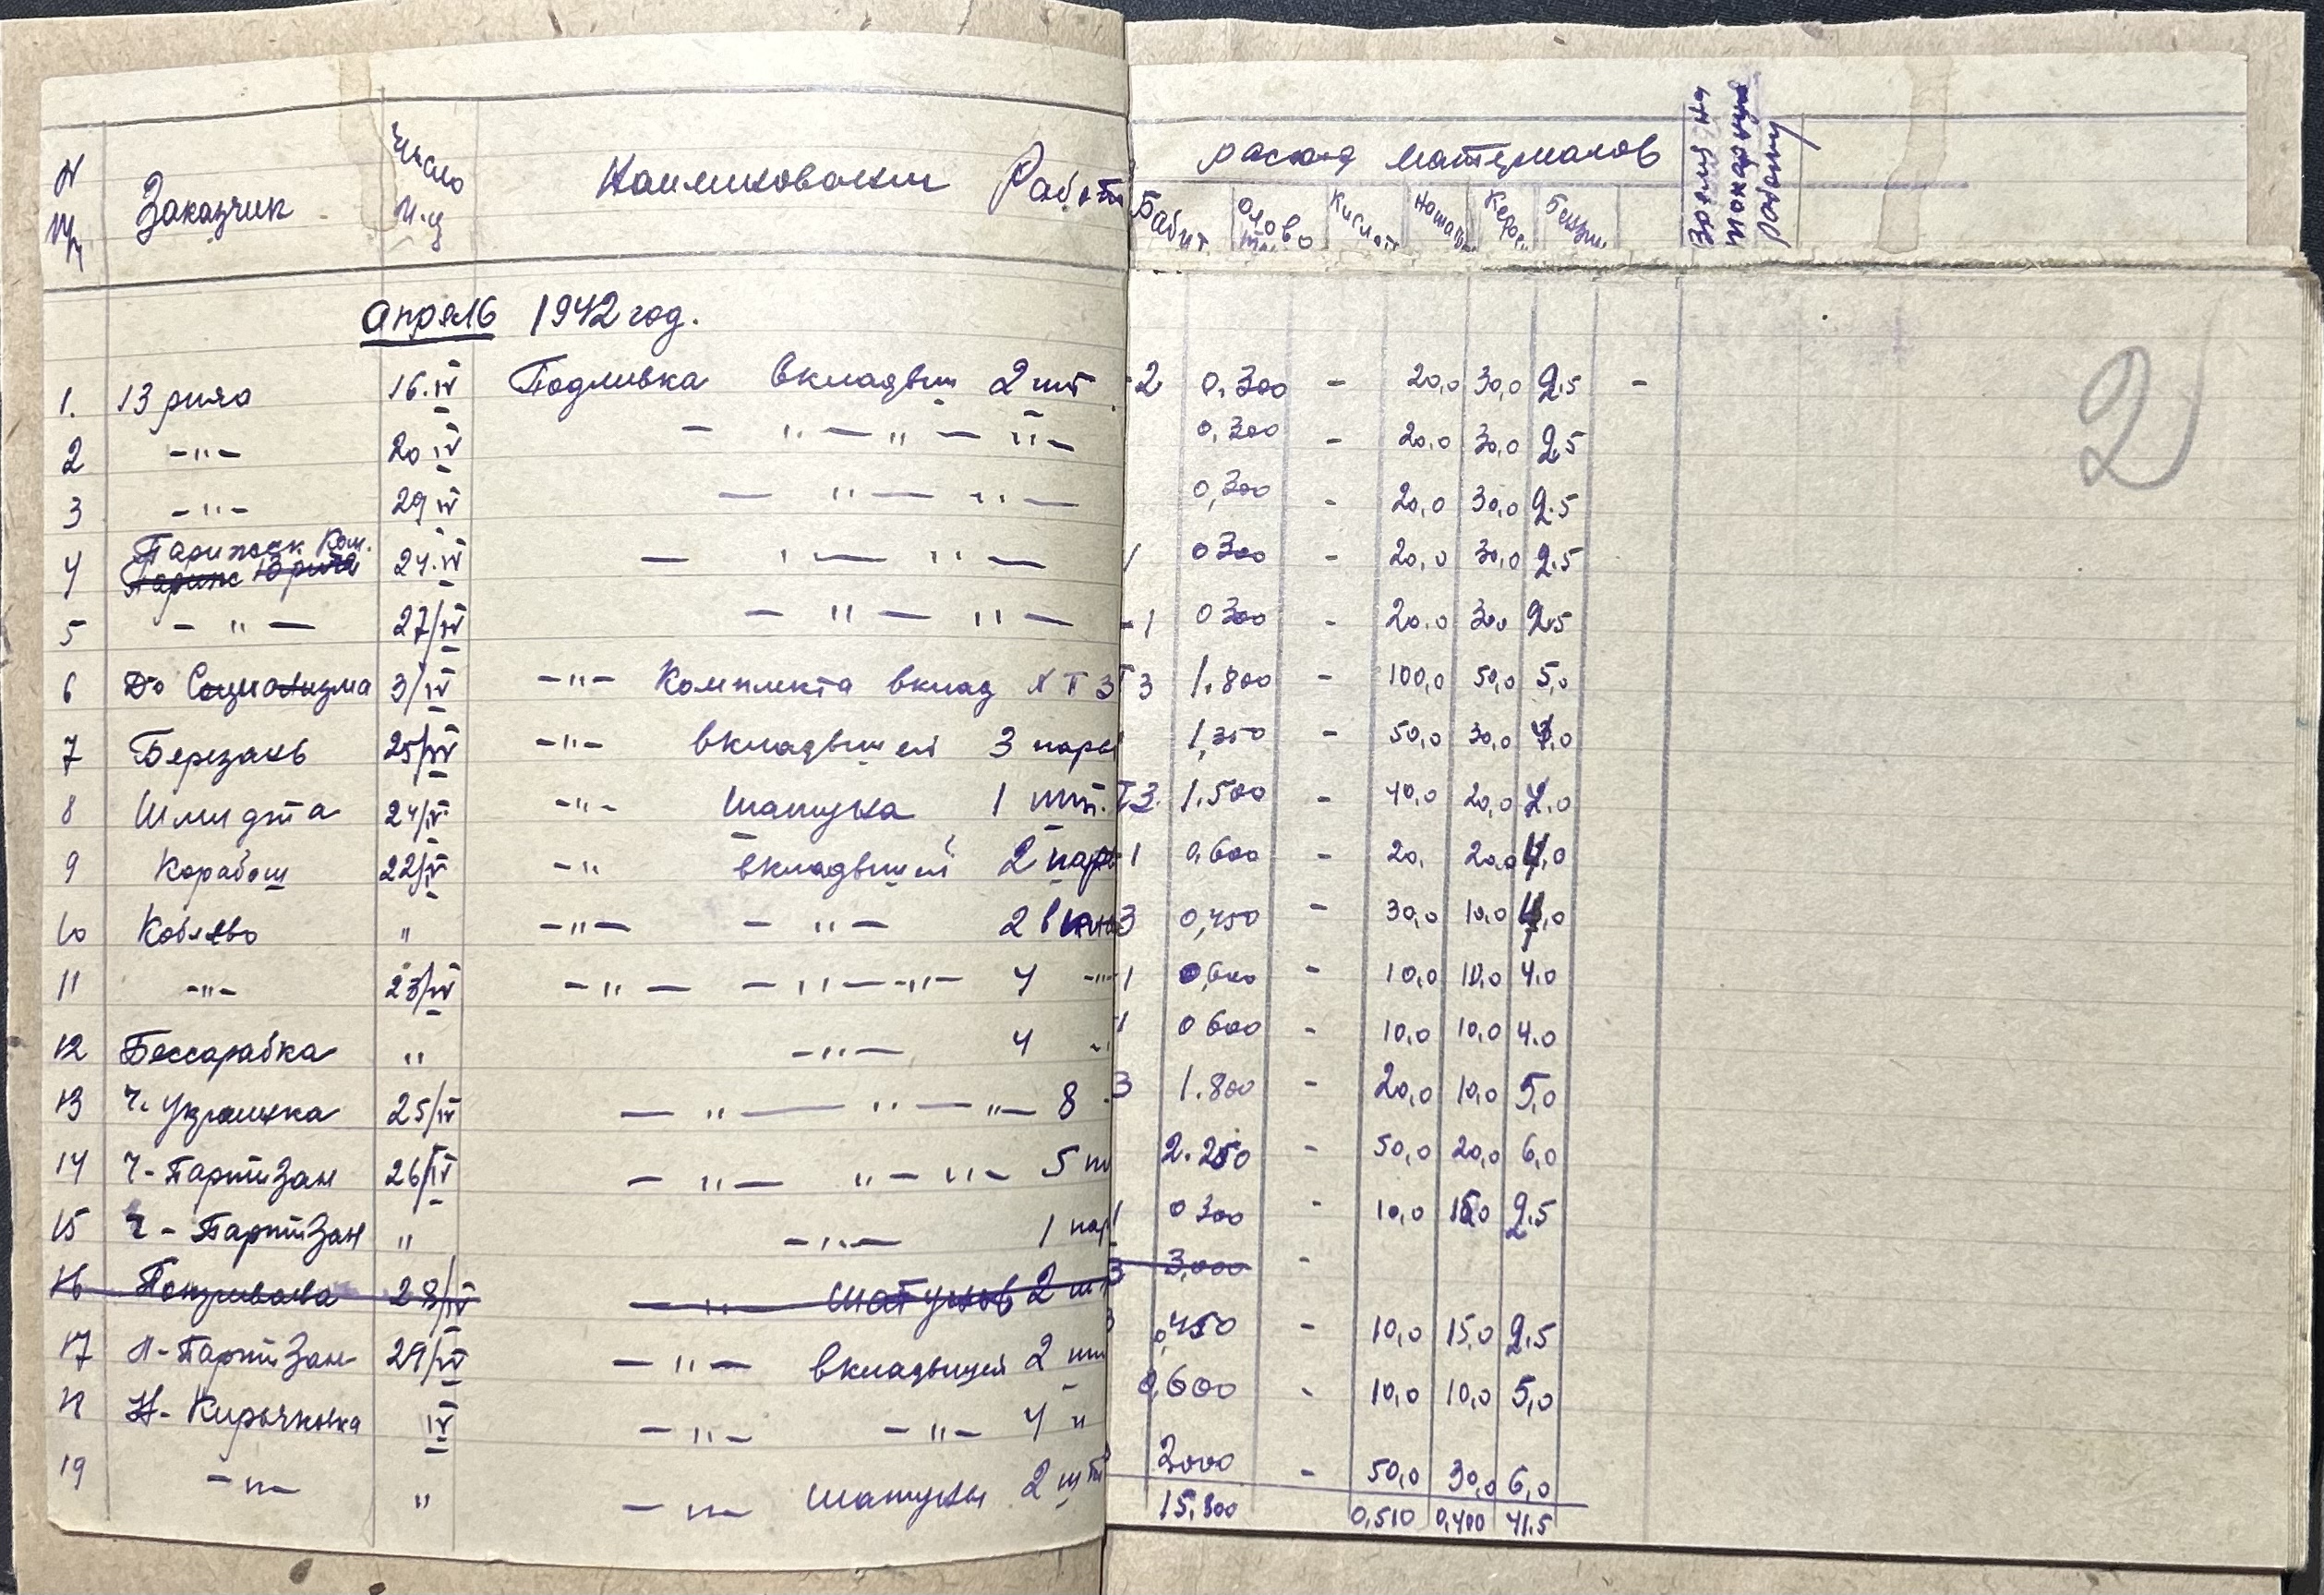 N п/п Заказчик Число м-ц Наименование Работ расход материалов Время на токарную работу
Бабит Олово Кислот Нашат Керос Бензин
Апрель 1942 год.
1. 13 рича 16.IV Подливка вкладыш 2 шт -2 0.300 - 20,0 30,0 2.5 -
2 -"- 20 IV - " - " - " - 0,300 - 20,0 30,0 2,5
3 -"- 29 IV - " - " - 0,300 - 20,0 30,0 2.5
4 Парижск Ком. 24.IV - " - " - 1 0300 - 20,0 30,0 2.5
Париж 13 рича
5 - " - 27/IV - " - " - -1 0300 - 20.0 30,0 2.5
6 До Социализма 3/IV -"- Комплекта вклад ХТЗ ТЗ 1.800 - 100,0 50,0 5,0
7 Березань 25/IV -"- вкладышей 3 пары 1,350 - 50,0 30,0 4,0
8 Шмидта 24/IV -"- Шатуна 1 шт. ТЗ. 1.500 - 40,0 20,0 4.0
9 Карабаш 22/IV -" вкладышей 2 пары -1 0,600 - 20, 20,0 4,0
10 Кобзево " -"- -"- 2 вкла 3 0,450 - 30,0 10,0 4,0
11 -"- 23/IV -"- -"- -"- 4 -"- 1 0,600 - 10,0 10,0 4.0
12 Бессарабка " -"- 4 -" -1 0600 - 10,0 10,0 4.0
13 Ч. Украинка 25/IV - " - " - " - 8 - 3 1.800 - 20,0 10,0 5,0
14 Ч-Партизан 26/IV - " - " - " - 5 ш 2.250 - 50,0 20,0 6,0
15 Ч-Партизан " -"- 1 пар 1 0300 - 10,0 15,0 2.5
16 28/IV - " - шатунов 2 шт 3 3,000 -
17 Л-Партизан 29/IV - " - вкладышей 2 шт 3 0,450 - 10,0 15,0 2.5
18 Н-Кирьяковка IV - " - - " - 4 " 0,600 - 10,0 10,0 5,0
19 -"- " -"- шатуны 2 шт 3000 - 50,0 30,0 6,0
15,300 0,510 0,400 41.5
2